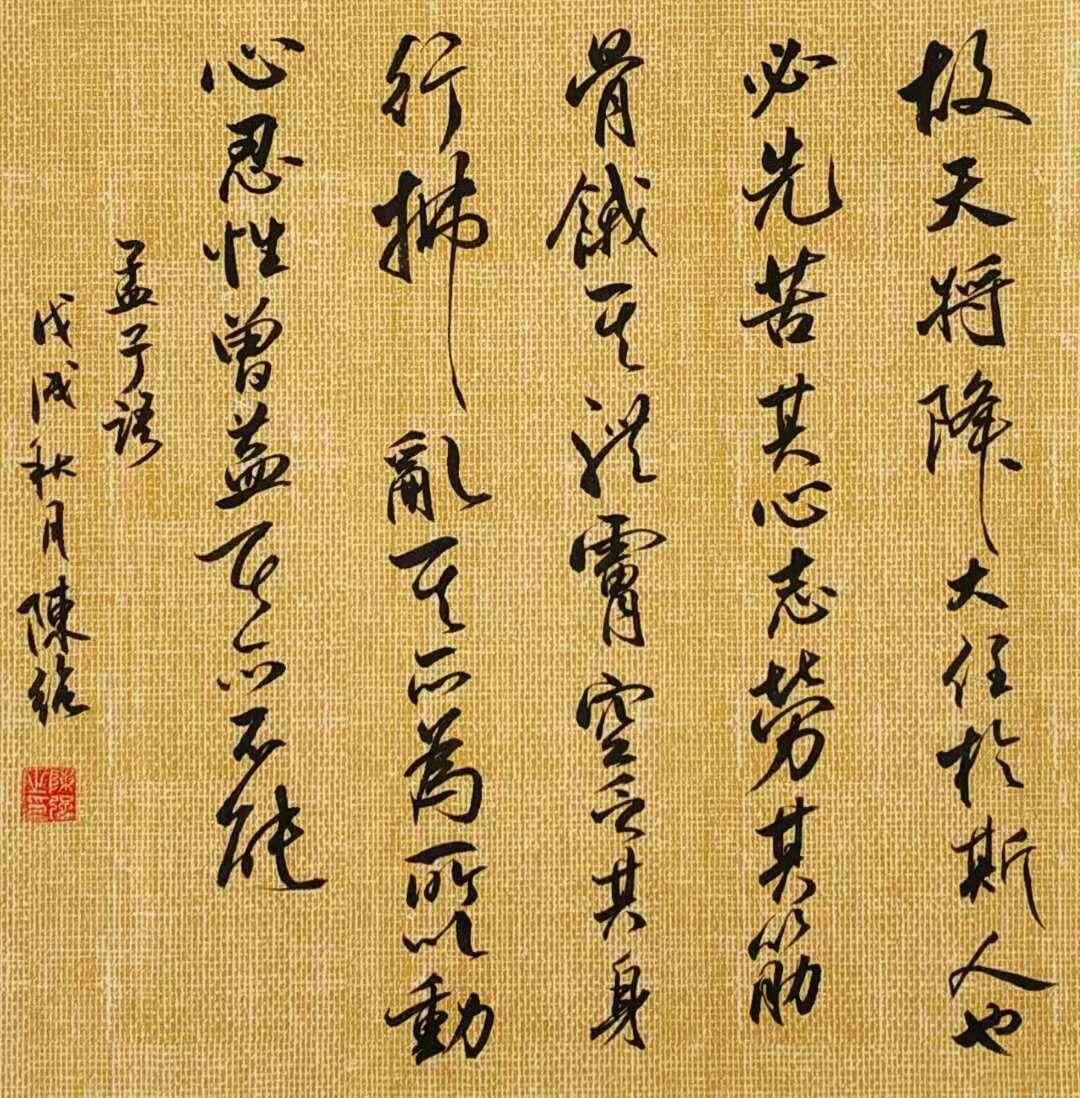 故天将降大任於斯人也
必先苦其心志勞其筋
骨餓其體膚空乏其身
行拂亂其所為所以動
心忍性曾益其所不能
孟子語
戊戌秋月陳